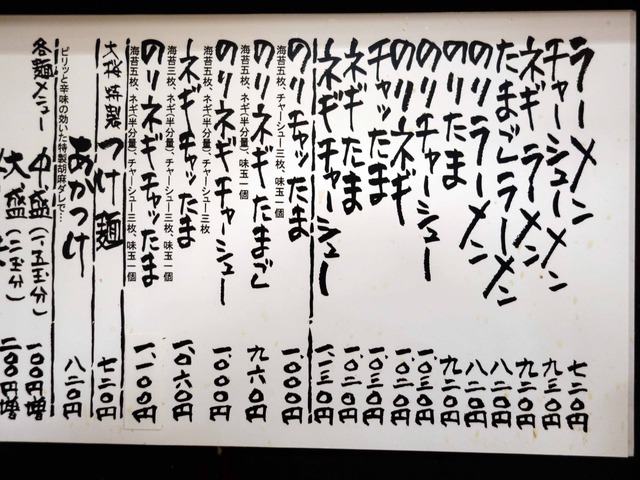 ラーメン 七二〇円
チャーシューメン 九三〇円
ネギラーメン 九二〇円
たまごラーメン 八二〇円
のりラーメン 八二〇円
のりたま 九二〇円
のりチャーシュー 一、〇三〇円
のりネギ 一、〇二〇円
チャッたま 一、〇三〇円
ネギたま 一、〇二〇円
ネギチャーシュー 一、一三〇円
のりチャッたま 一、〇〇〇円
海苔五枚、チャーシュー三枚、味玉一個
のりネギたまご 九六〇円
海苔五枚、ネギ(半分量)、味玉一個
のりネギチャーシュー 一、〇〇〇円
海苔五枚、ネギ(半分量)、チャーシュー三枚
ネギチャッたま 一、〇六〇円
海苔三枚、ネギ(半分量)、チャーシュー三枚、味玉一個
のりネギチャッたま 一、一〇〇円
海苔五枚、ネギ(半分量)、チャーシュー三枚、味玉一個
大桜特製 つけ麺 七二〇円
あかつけ 八二〇円
ピリッと辛味の効いた特製胡麻ダレで…
各麺メニュー 中盛(一・五玉分) 一〇〇円増
大盛(二玉分) 二〇〇円増